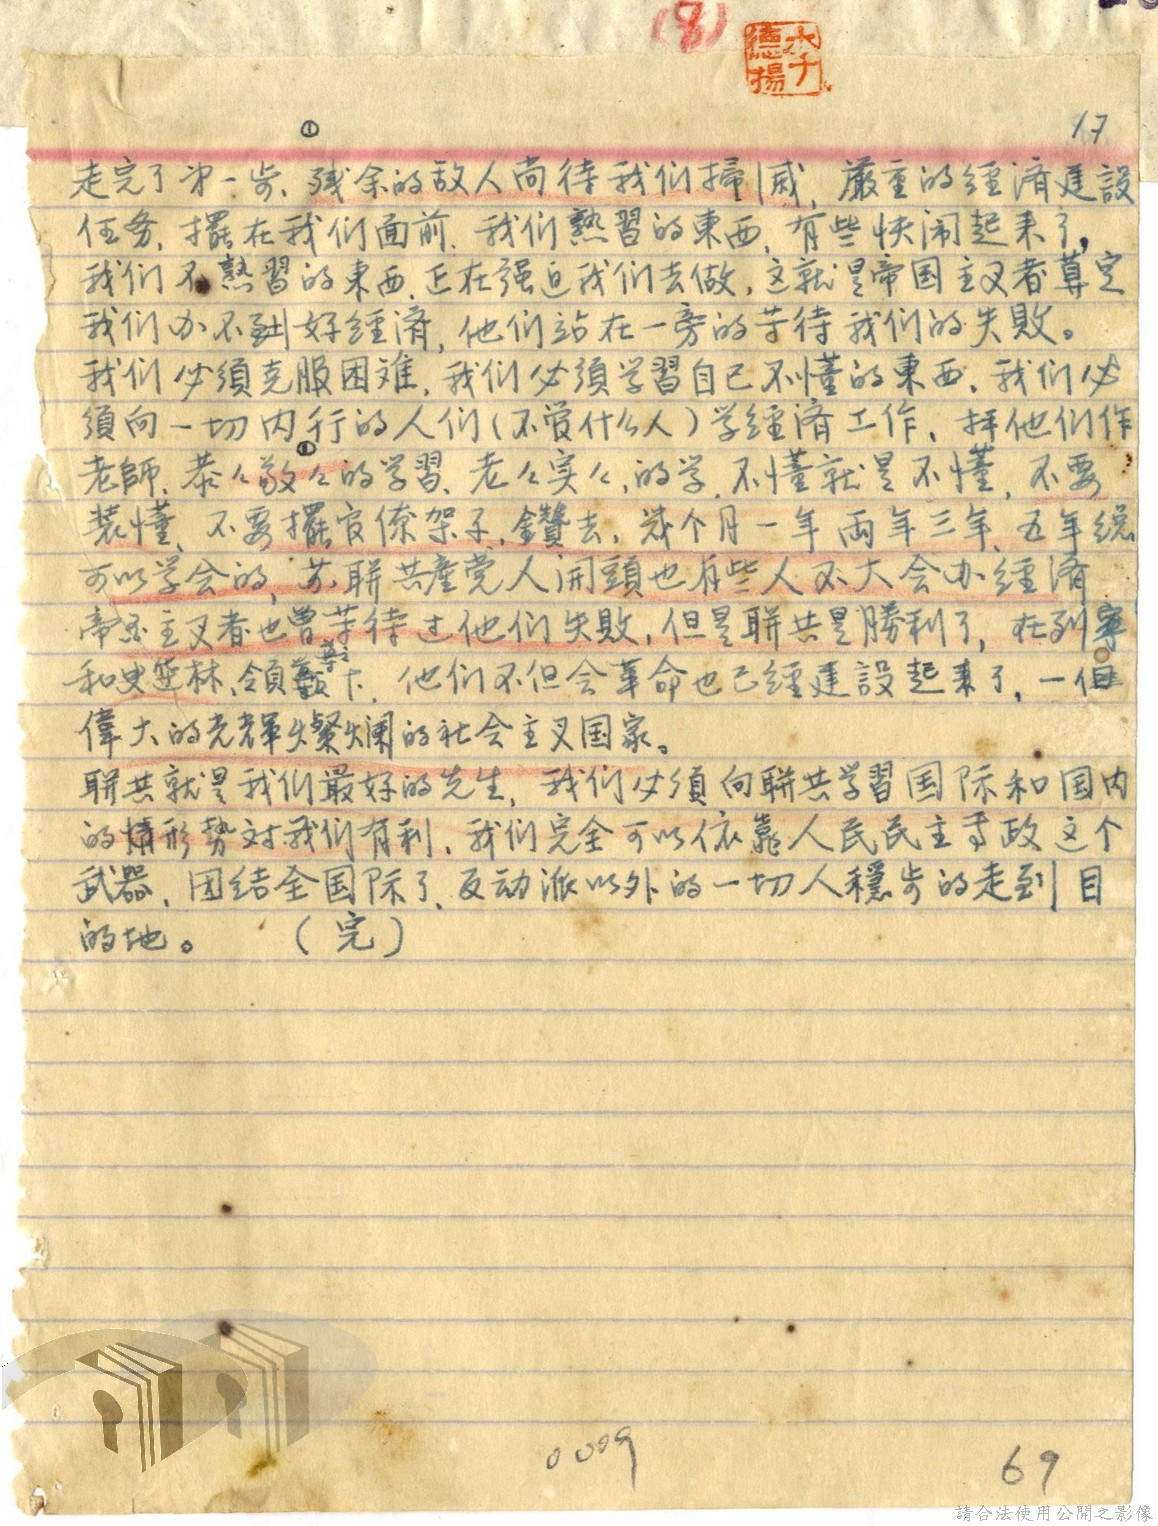 (8)
李德揚
17
①
走完了第一步、残余的敌人尚待我们掃滅，嚴重的經済建設
任务，擺在我们面前．我们熟習的東西，有些快闹起来了，
我们不熟習的東西，正在强迫我们去做，这就是帝国主义者算定
我们办不到好經済，他们站在一旁的等待我们的失敗。
我们必須克服困难，我们必須学習自己不懂的東西，我们必
須向一切内行的人们(不管什么人)学經済工作、拜他们作
老師、恭々敬々的学習、老々实々，的学，不懂就是不懂，不要
装懂、不要擺官僚架子，鑽进去，几个月一年两年三年、五年總
可以学会的，苏聯共產党人開頭也有些人不大会办經済
帝国主义者也曾等待过他们失敗，但是聯共是勝利了，在列寧
和史達林、領導下，他们不但会革命也已經建設起来了，一個
偉大的光輝燦爛的社会主义国家。
聯共就是我们最好的先生，我们必須向聯共学習国际和国内
的情形勢对我们有利，我们完全可以依靠人民民主専政这个
武器、团结全国除了、反动派以外的一切人穩步的走到目
的地。 (完)
0009
69
請合法使用公開之影像